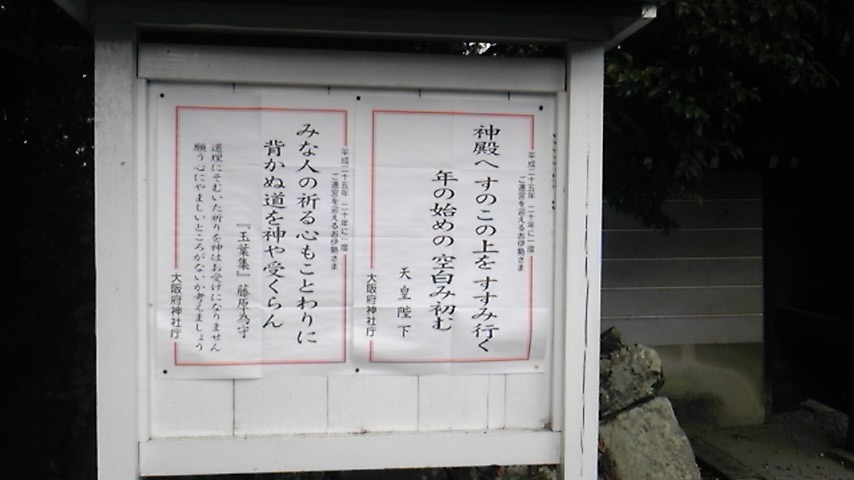 平成二十五年 二十年に一度
ご遷宮を迎えるお伊勢さま
神殿へ すのこの上を すすみ行く
年の始めの 空白み初む
天皇陛下
大阪府神社庁
平成二十五年 二十年に一度
ご遷宮を迎えるお伊勢さま
みな人の祈る心もことわりに
背かぬ道を神や受くらん
『玉葉集』藤原為守
道理にそむいた祈りを神はお受けになりません
願う心にやましいところがないか考えましょう
大阪府神社庁